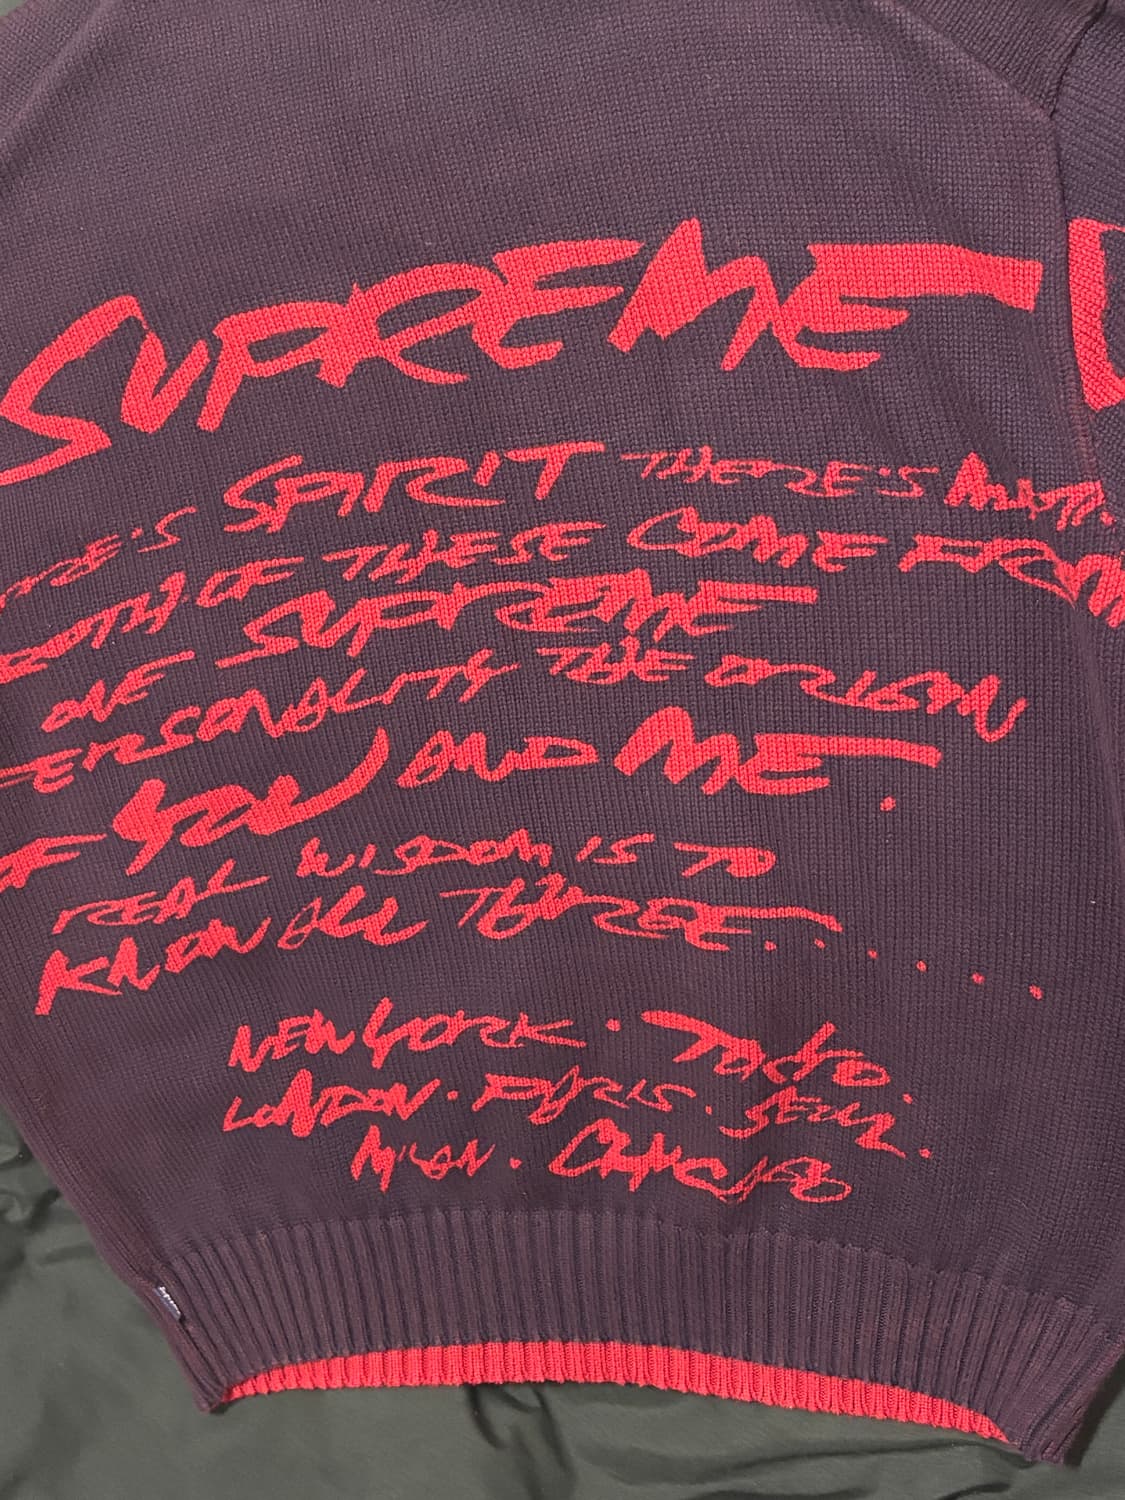 SUPREME
RE'S SPIRIT THERE'S MATT
BOTH OF THESE COME FROM
ONE SUPREME
PERSONALITY THE ORIGIN
OF YOU AND ME.
REAL WISDOM IS TO
KNOW ALL THREE.......
NEW YORK · TOKYO ·
LONDON · PARIS · SEOUL ·
MILAN · CHICAGO